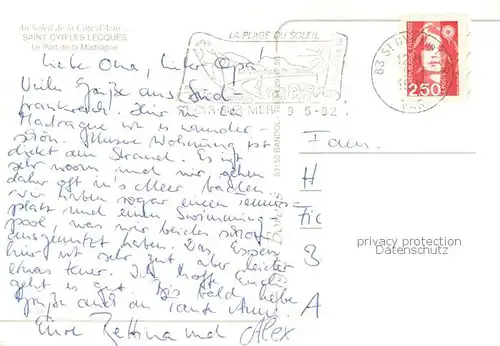 Au Soleil de la Côte d'Azur ...
SAINT-CYR-LES LECQUES
Le Port de la Madrague
LA PLAGE DU SOLEIL
83 ST CYR
2,50
9-5-92
83150 BANDOL
Liebe Oma, lieber Opa!
Viele Grüße aus Süd-
frankreich. Hier in La
Madrague ist es wunder-
schön. Unsere Wohnung ist
dickt am Strand. Es ist
sehr warm und wir gehen
daher oft in's Meer baden.
Wir haben sogar einen Tennis-
platz und einen Swimming-
pool, was wir beides schon
ausgenutzt haben. Das Essen
hier ist sehr gut aber leider
etwas teuer. Ich hoffe Euch
geht es gut. Bis bald liebe
Grüße auch an Tante Anni.
Eure Bettina und Alex
Fam.
H
3
A
privacy protection
Datenschutz